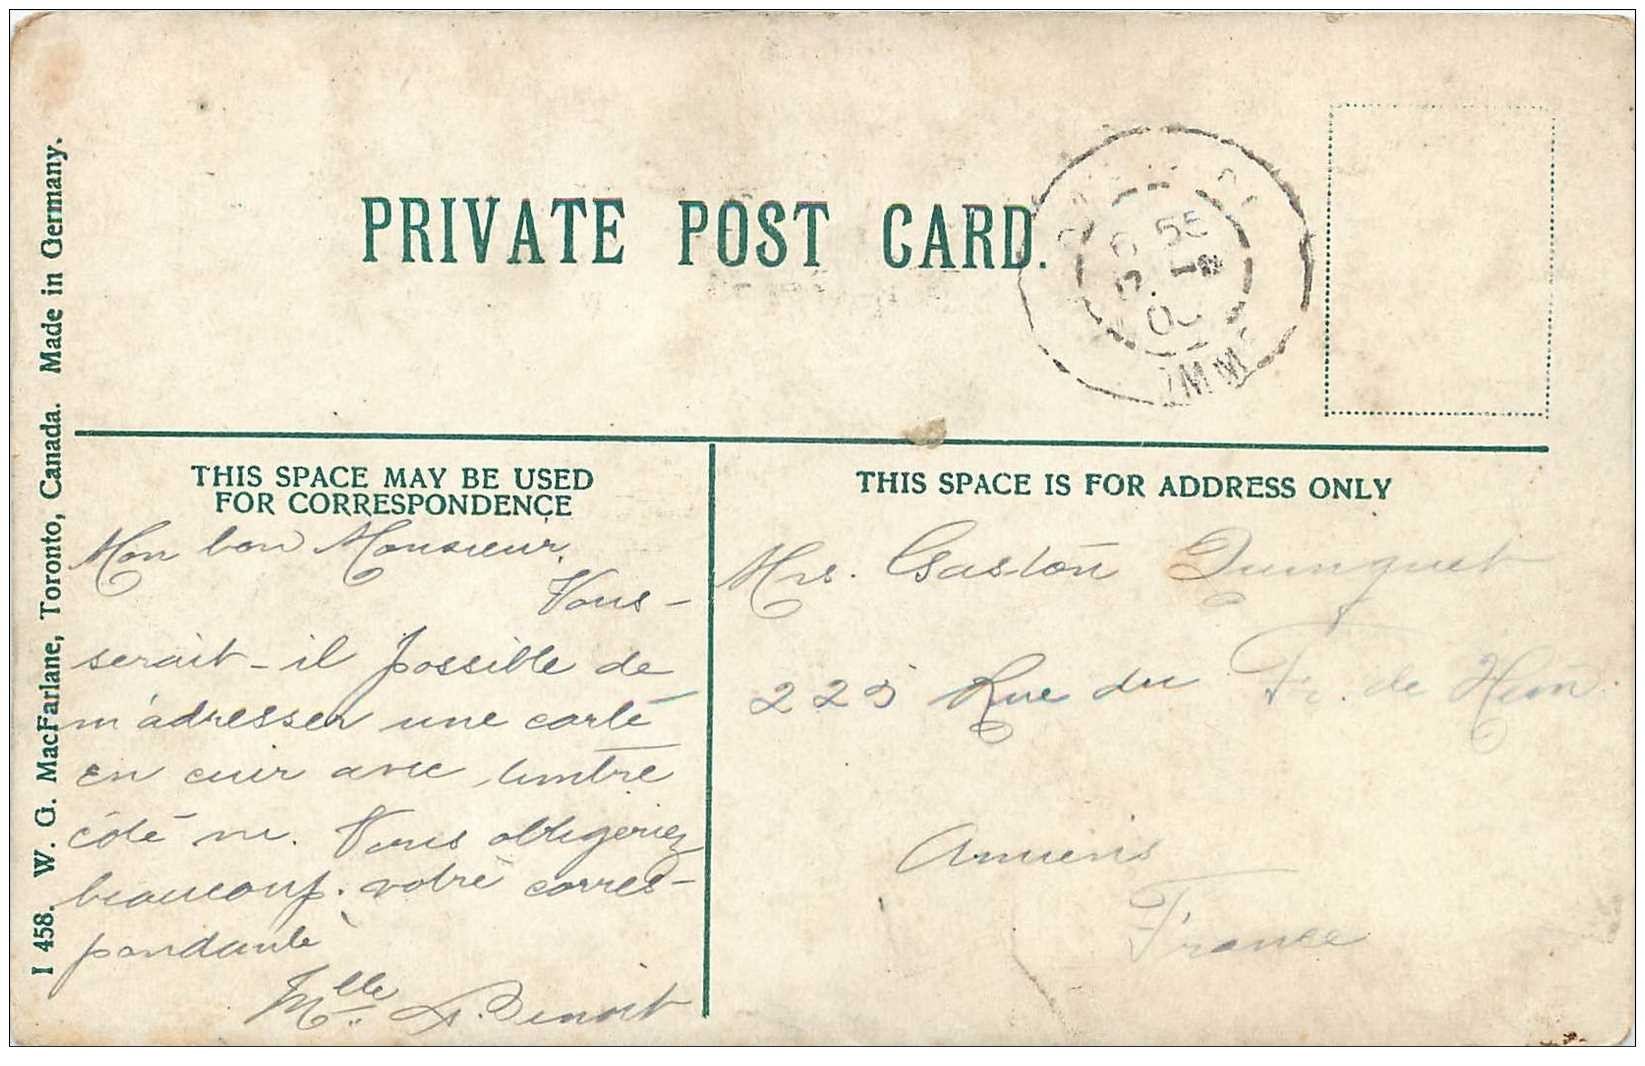 PRIVATE POST CARD.
I 458. W. G. MacFarlane, Toronto, Canada. Made in Germany.
THIS SPACE MAY BE USED
FOR CORRESPONDENCE
Mon bon Monsieur.
Vous-
serait-il possible de
m'adresser une carte
en cuir avec timbre
côté vu. Vous obligeriez
beaucoup. votre corres-
pondante
Mlle A. Benoit
THIS SPACE IS FOR ADDRESS ONLY
Mrs. Gaston
225 Rue du Fr. de Hem
Amiens
France